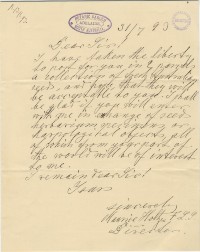 BOTANIC GARDEN
ADELAIDE
31/7 93
Dear Sir!
I have taken the liberty
to post for you in 2 parcels
a collection of seeds
and hope that they will
be acceptable to you. I shall
be glad if you will enter
with me in exchange of seeds
herbarium specimens or
carpological objects, all
of from your part of
the world will be of interest
to me.
I remain dear Sir!
Yours
sincerely
Maurice Holtze F.L.S.
Director